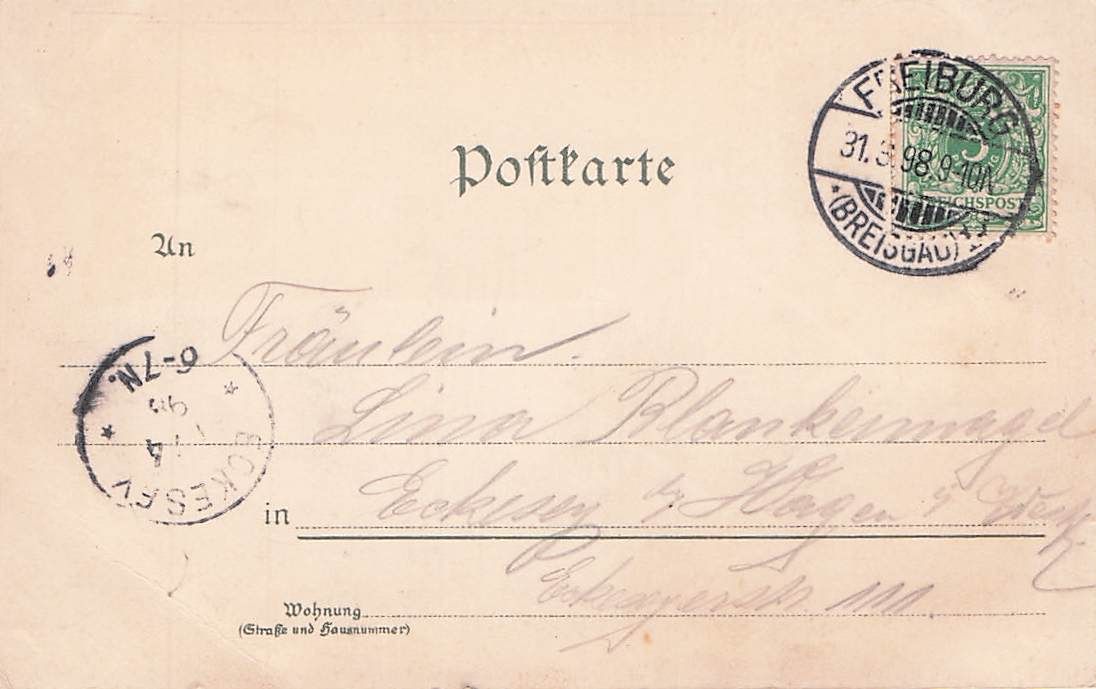 Postkarte
FREIBURG
31. 3. 98. 9-10N
(BREISGAU) 1
5
REICHSPOST
An
Fräulein.
Lina Blankennagel
in Eckesey b/ Hagen i/ Westf.
ECKESEY
6-7N.
Wohnung
(Straße und Hausnummer)